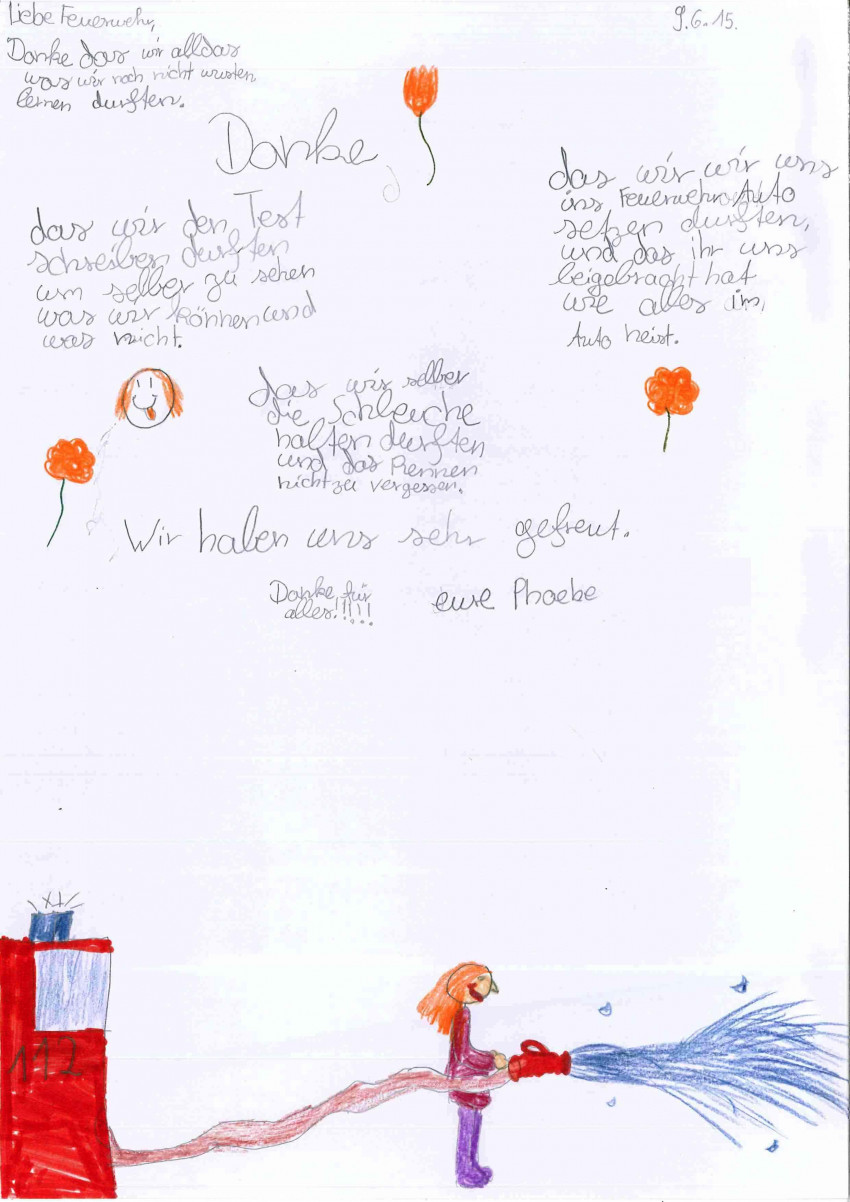 Liebe Feuerwehr,
9.6.15.
Danke das wir alldas
was wir noch nicht wusten
lernen durften.
Danke
das wir den Test
schreiben durften
um selber zu sehen
was wir können und
was nicht.
das wir wir uns
ins Feuerwehr Auto
setzen durften,
und das ihr uns
beigebracht hat
wie alles im,
Auto heist.
das wir selber
die Schleuche
halten durften
und das Rennen
nicht zu vergessen.
Wir haben uns sehr gefreut.
Danke für
alles!!!!!
eure Phoebe
112